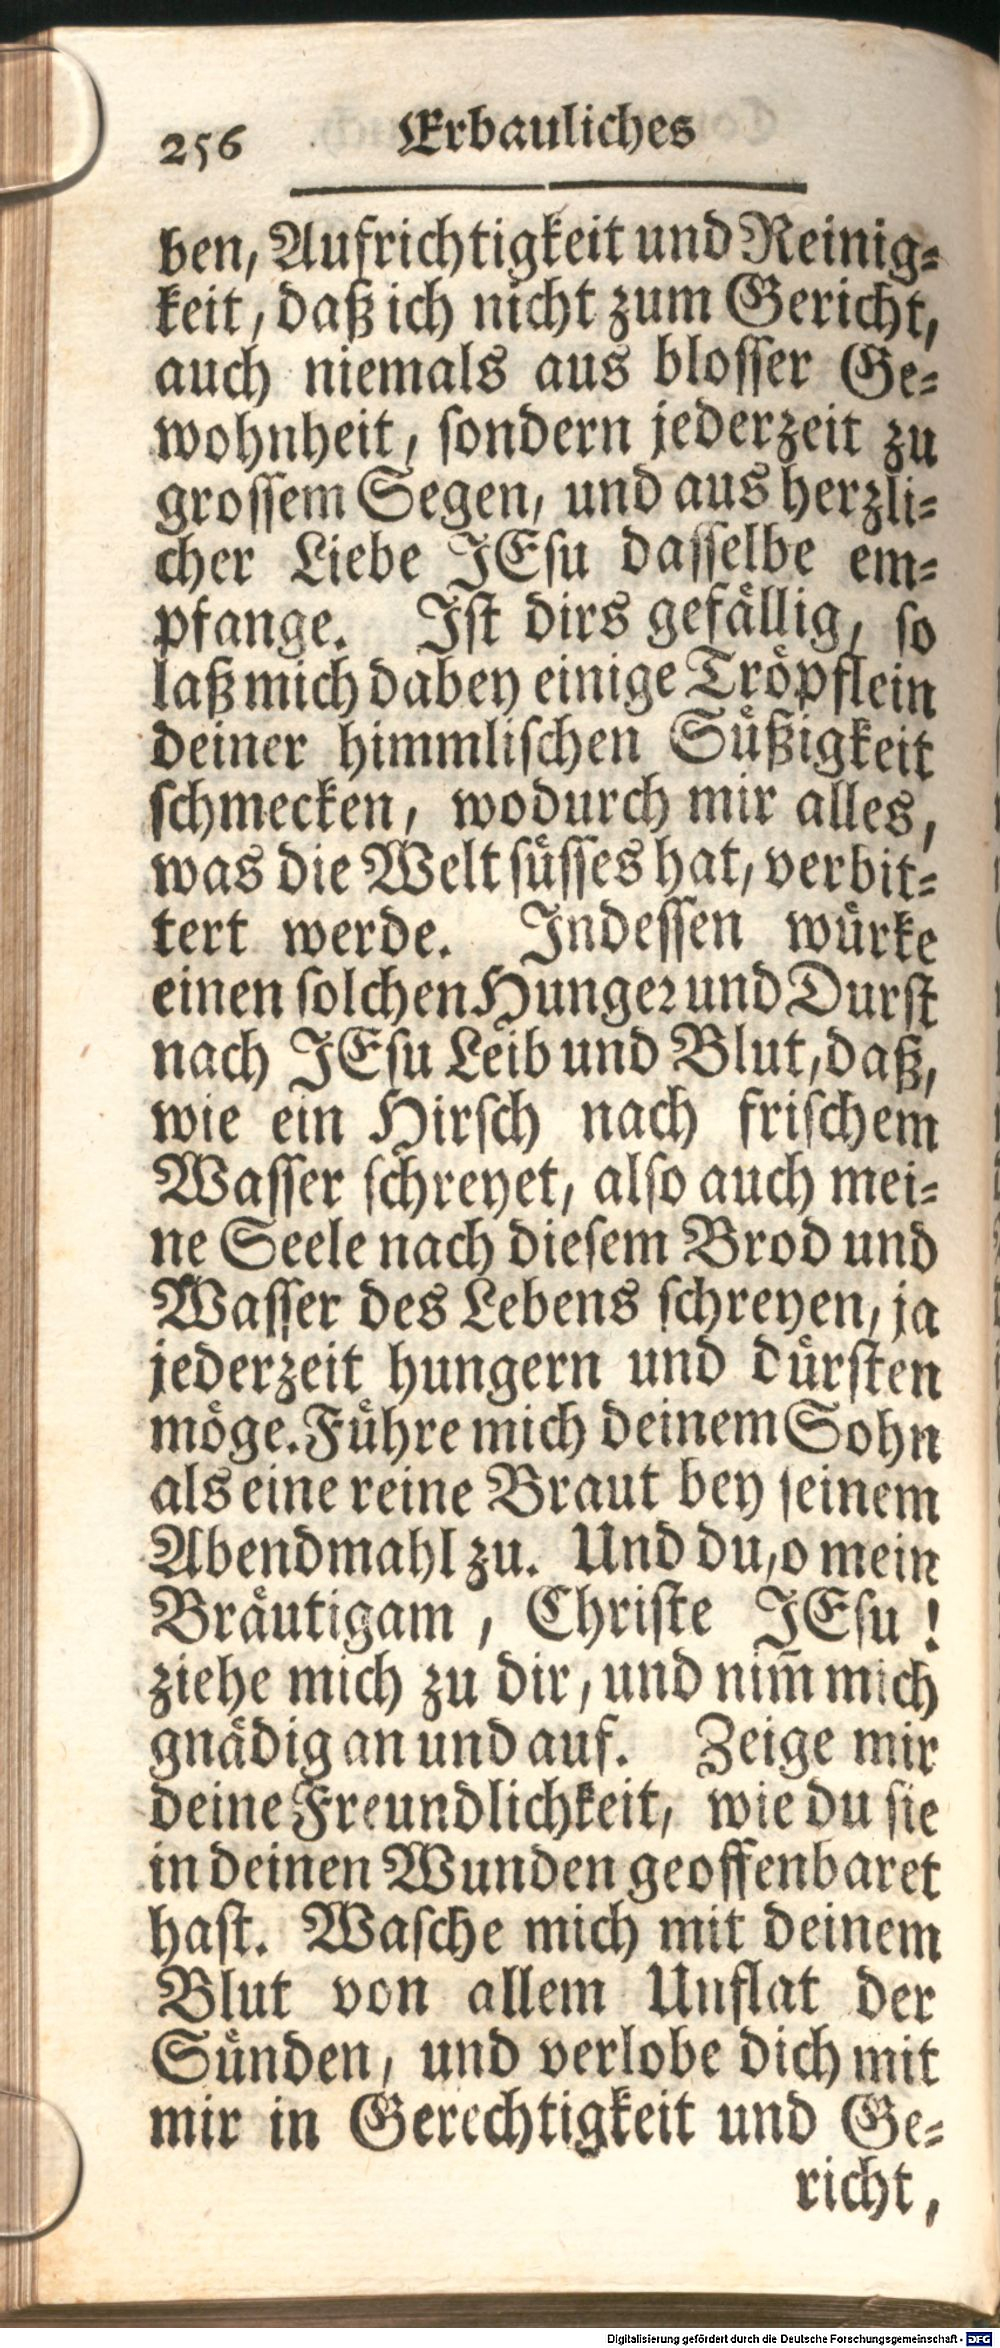 256 Erbauliches
ben, Aufrichtigkeit und Reinig⸗
keit, daß ich nicht zum Gericht,
auch niemals aus bloſſer Ge⸗
wohnheit, ſondern jederzeit zu
groſſem Segen, und aus herzli⸗
cher Liebe JEſu daſſelbe em⸗
pfange. Iſt dirs gefaͤllig, ſo
laß mich dabey einige Troͤpflein
deiner himmliſchen Suͤßigkeit
ſchmecken, wodurch mir alles,
was die Welt ſuͤſſes hat, verbit⸗
tert werde. Indeſſen wuͤrke
einen ſolchen Hunger und Durſt
nach JEſu Leib und Blut, daß,
wie ein Hirſch nach friſchem
Waſſer ſchreyet, alſo auch mei⸗
ne Seele nach dieſem Brod und
Waſſer des Lebens ſchreyen, ja
jederzeit hungern und duͤrſten
moͤge. Fuͤhre mich deinem Sohn
als eine reine Braut bey ſeinem
Abendmahl zu. Und du, o mein
Braͤutigam, Chriſte JEſu!
ziehe mich zu dir, und nim̃ mich
gnaͤdig an und auf. Zeige mir
deine Freundlichkeit, wie du ſie
in deinen Wunden geoffenbaret
haſt. Waſche mich mit deinem
Blut von allem Unflat der
Suͤnden, und verlobe dich mit
mir in Gerechtigkeit und Ge⸗
richt,
Digitalisierung gefördert durch die Deutsche Forschungsgemeinschaft - DFG